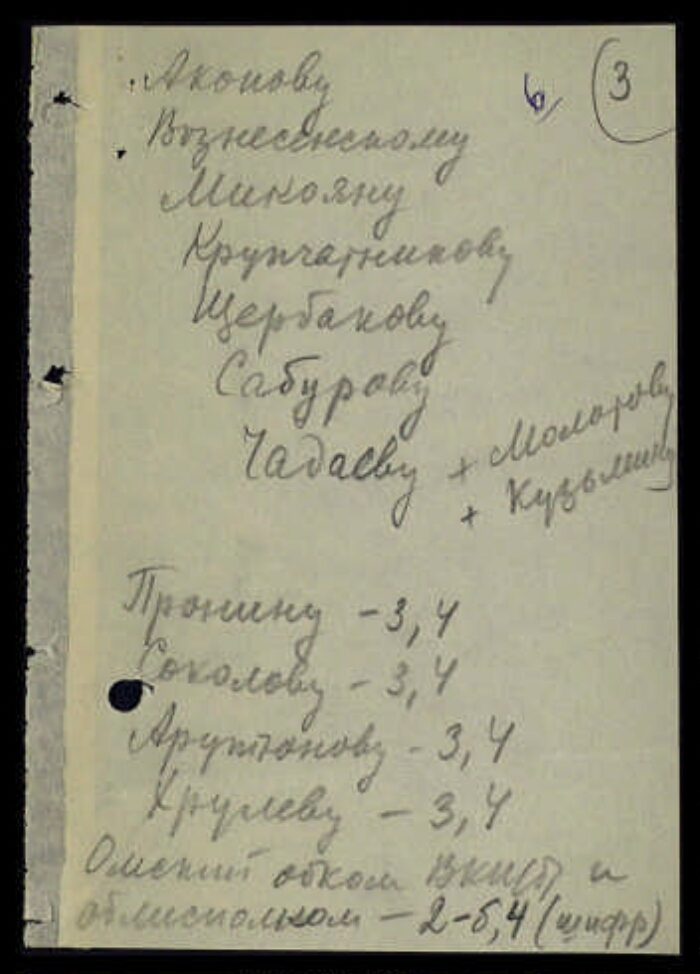 3
Акопову
Вознесенскому
Микояну
Крупчатникову
Щербакову
Сабурову
Чадаеву + Молотову
+ Кузьмину
Пронину – 3, 4
Соколову – 3, 4
Арутюнову – 3, 4
Хрулеву – 3, 4
Омский обком ВКП(б) и
облисполком – 2-б, 4 (шифр)